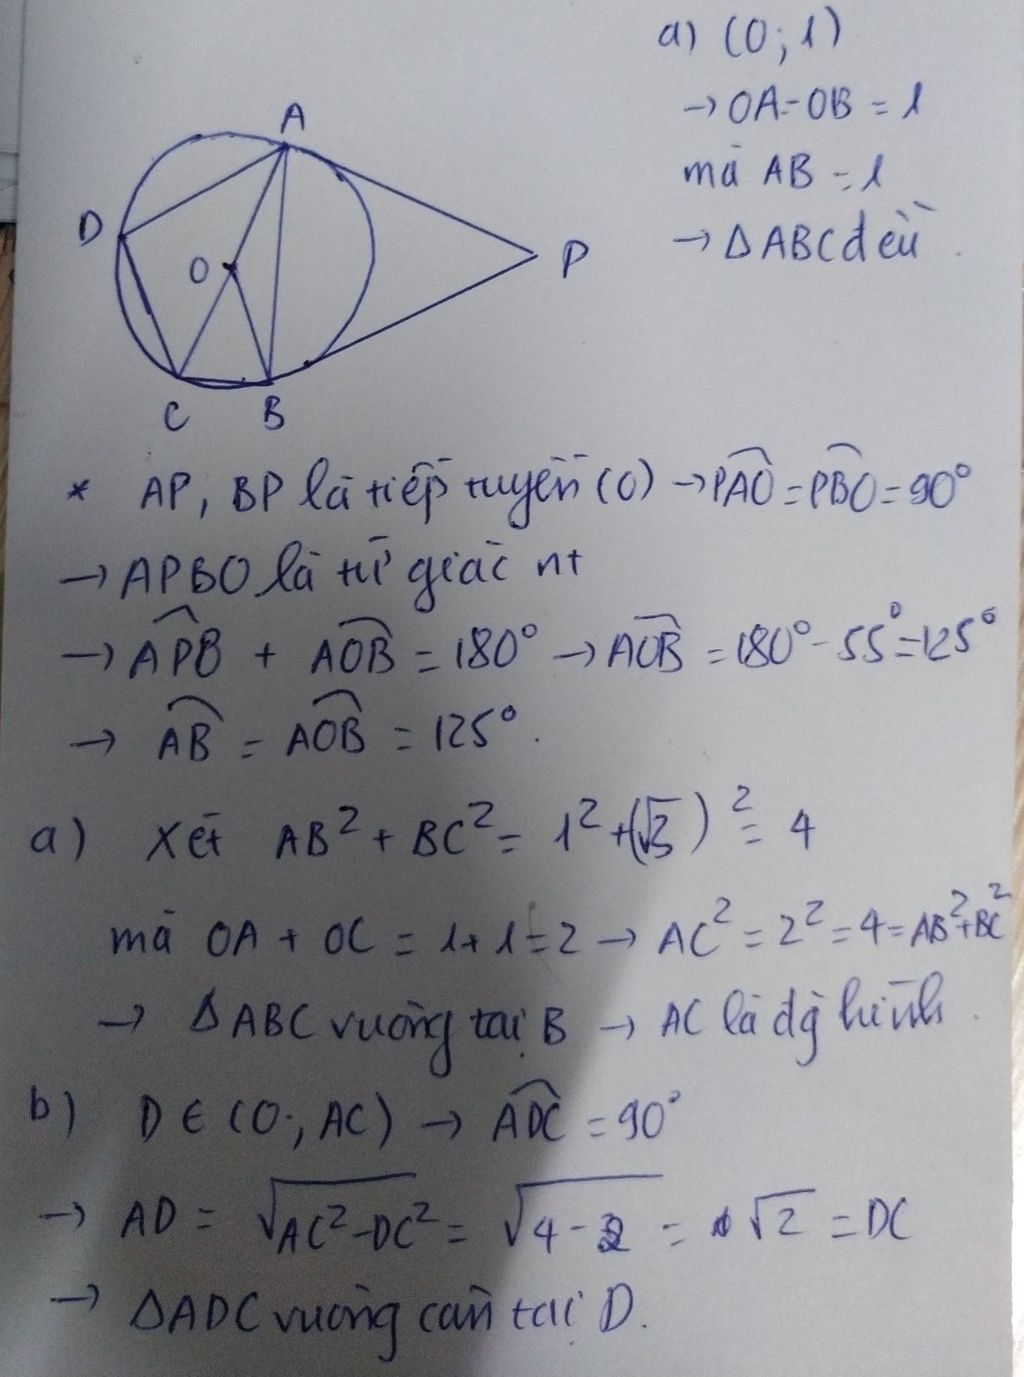 a) (O; 1)
→ OA = OB = 1
mà AB = 1
→ ΔABC đều.
A
D
O
P
C
B
* AP, BP là tiếp tuyến (O) → PAO = PBO = 90°
→ APBO là tứ giác nt
→ APB + AOB = 180° → AOB = 180° - 55° = 125°
→ AB = AOB = 125°.
a) Xét AB² + BC² = 1² + (√3)² = 4
mà OA + OC = 1 + 1 = 2 → AC² = 2² = 4 = AB² + BC²
→ ΔABC vuông tại B → AC là đg kính.
b) D ∈ (O; AC) → ADC = 90°
→ AD = √AC² - DC² = √4 - 2 = √2 = DC
→ ΔADC vuông cân tại D.